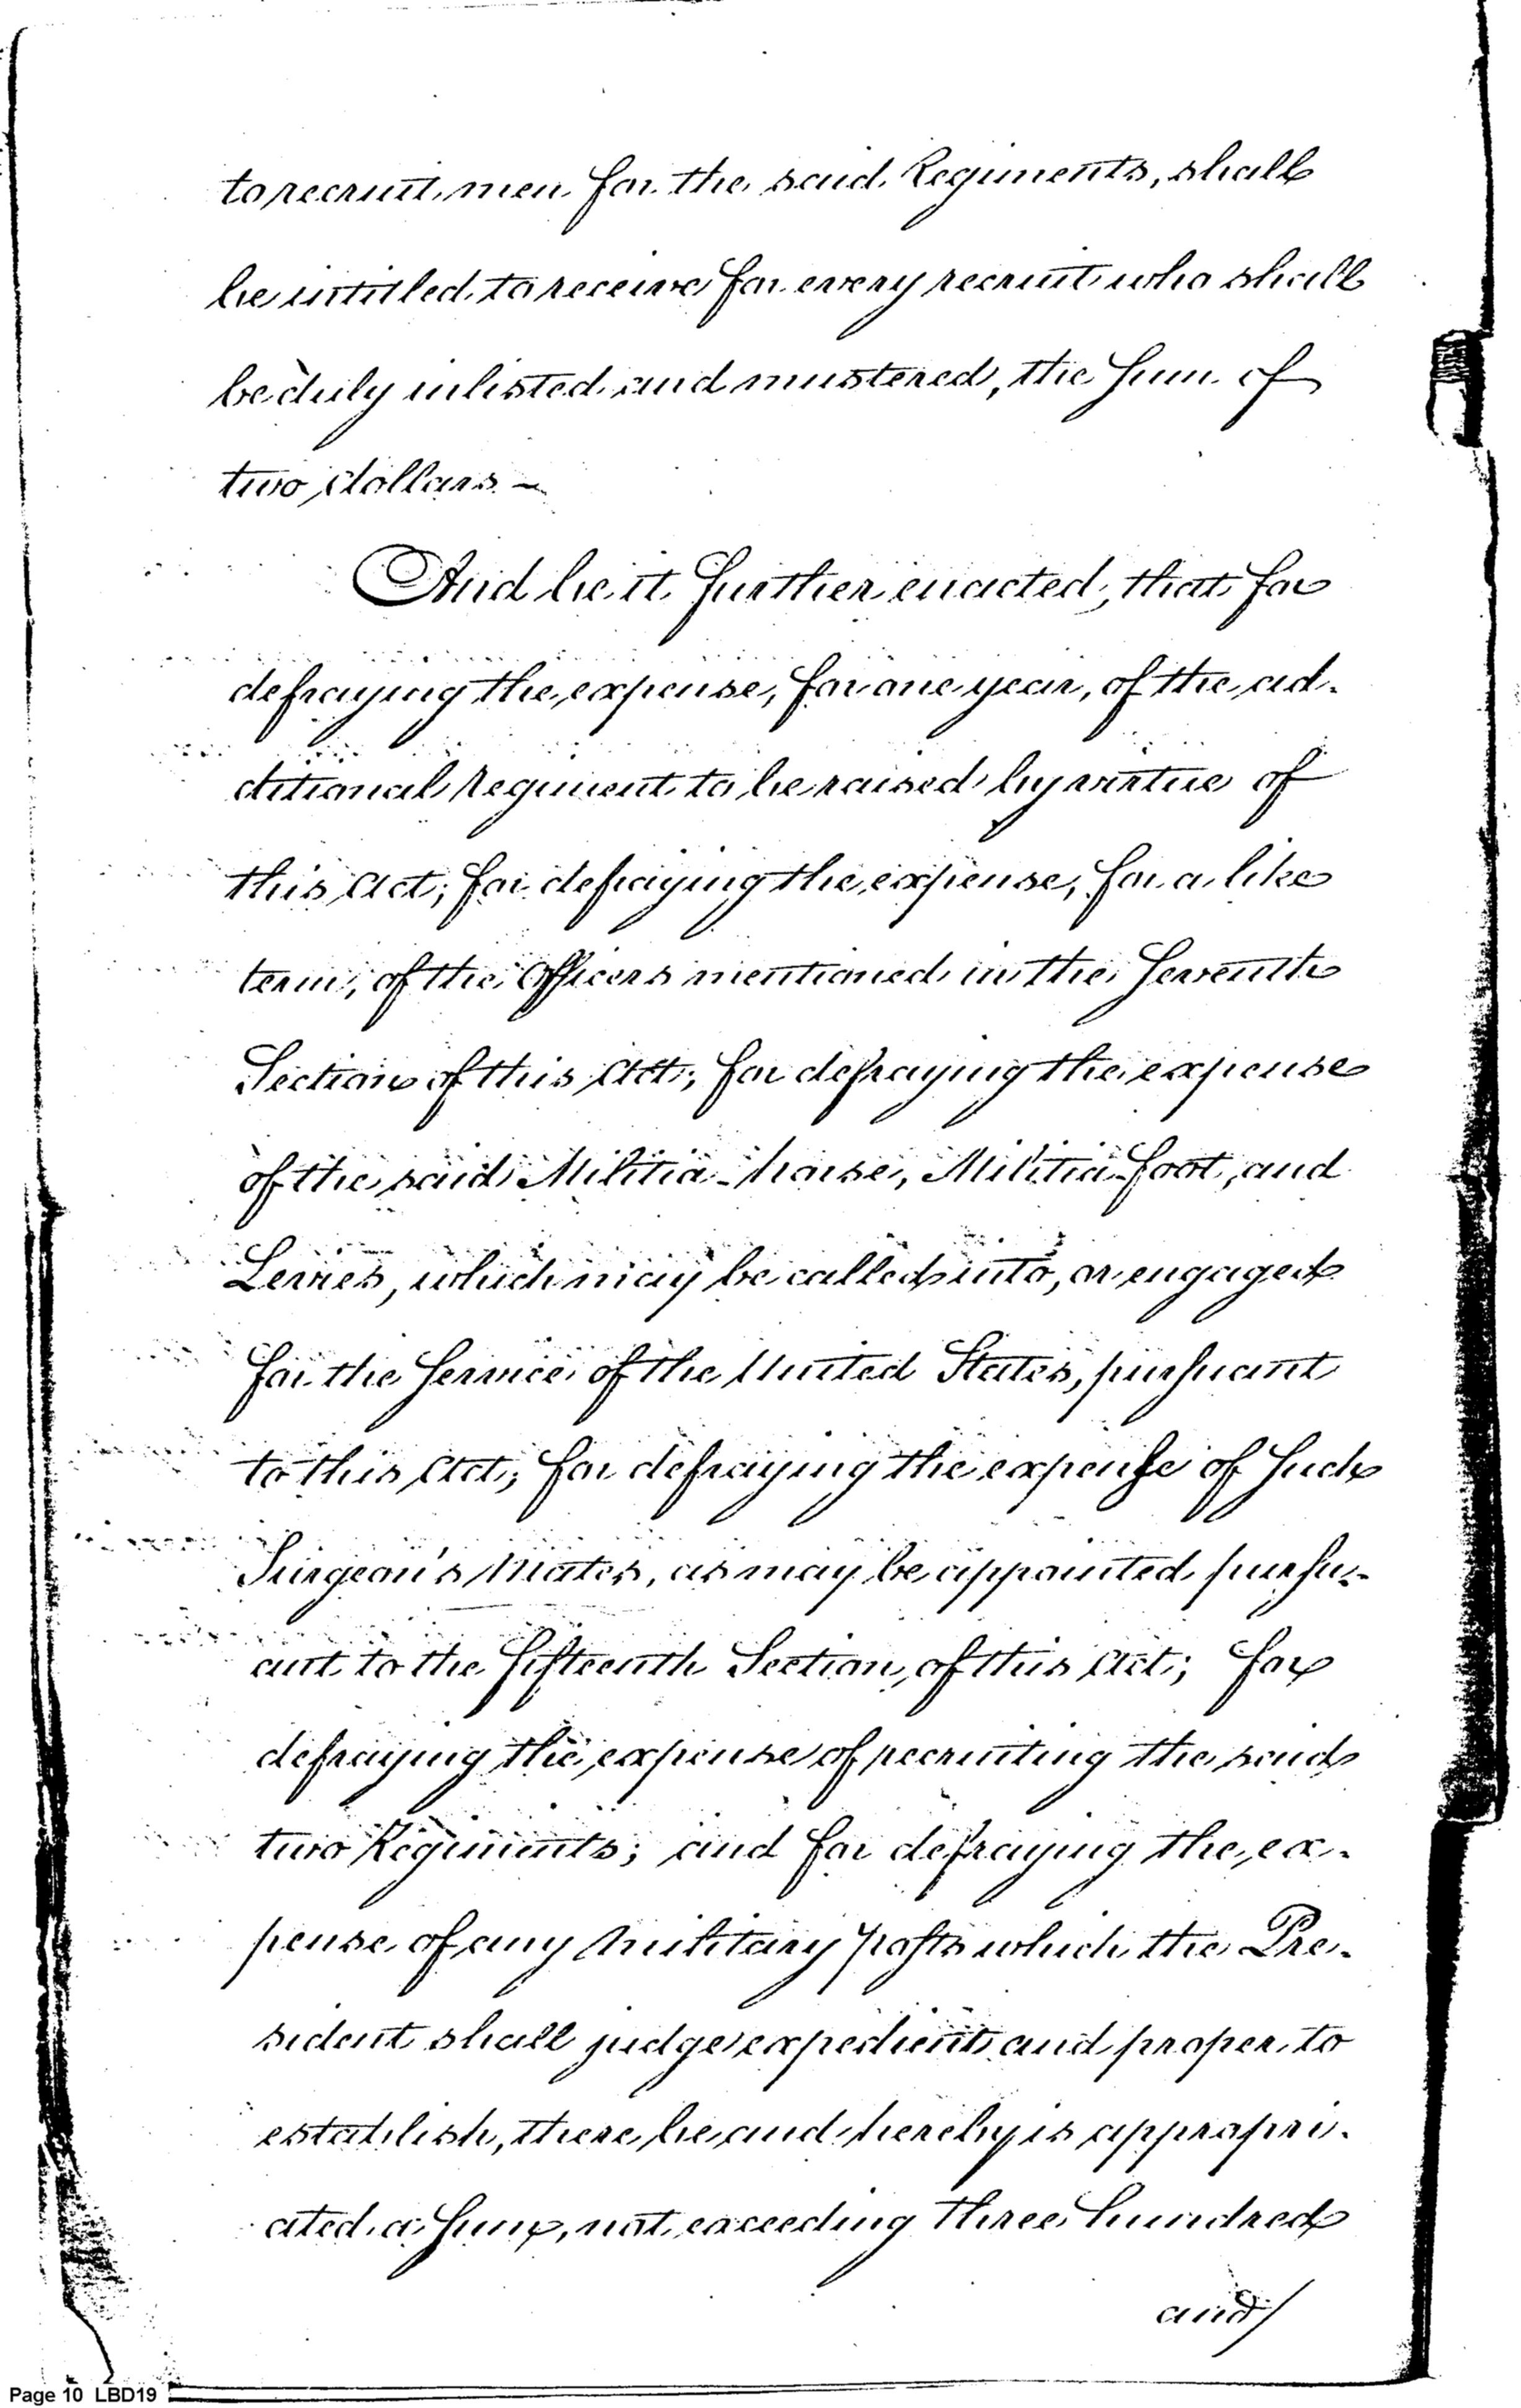 to recruit men for the said Regiments, shall
be intitled to receive for every recruit who shall
be duly inlisted and mustered, the Sum of
two dollars. —
And be it further enacted, that for
defraying the expense, for one year, of the ad-
ditional Regiment to be raised by virtue of
this Act; for defraying the expense, for a like
term, of the Officers mentioned in the Seventh
Section of this Act; for defraying the expense
of the said Militia-horse, Militia-foot, and
Levies, which may be called into, or engaged
for the Service of the United States, purſuant
to this Act; for defraying the expenſe of Such
Surgeon's Mates, as may be appointed purſu-
ant to the fifteenth Section of this Act; for
defraying the expense of recruiting the said
two Regiments; and for defraying the ex-
pense of any Military poſts which the Pre-
sident shall judge expedient and proper to
establish, there be and hereby is appropri-
ated a Sum, not exceeding three hundred
and/
Page 10 LBD19